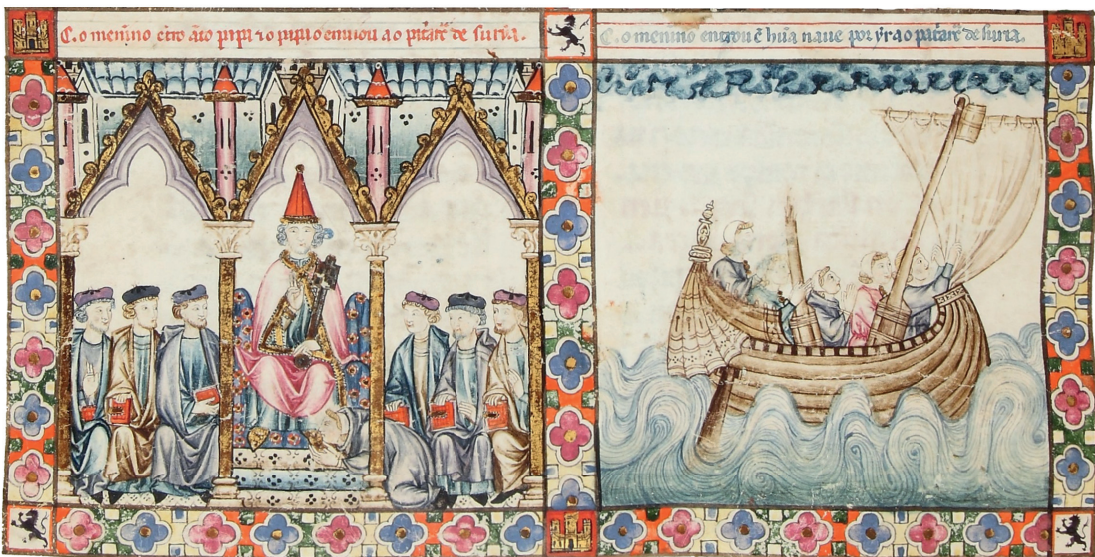 C. o menino papa ⁊ o papa o enuiou a o patarc̃ de suria.
C. o menino entrou ẽ hũa naue por yr a o patarc̃ de suria.